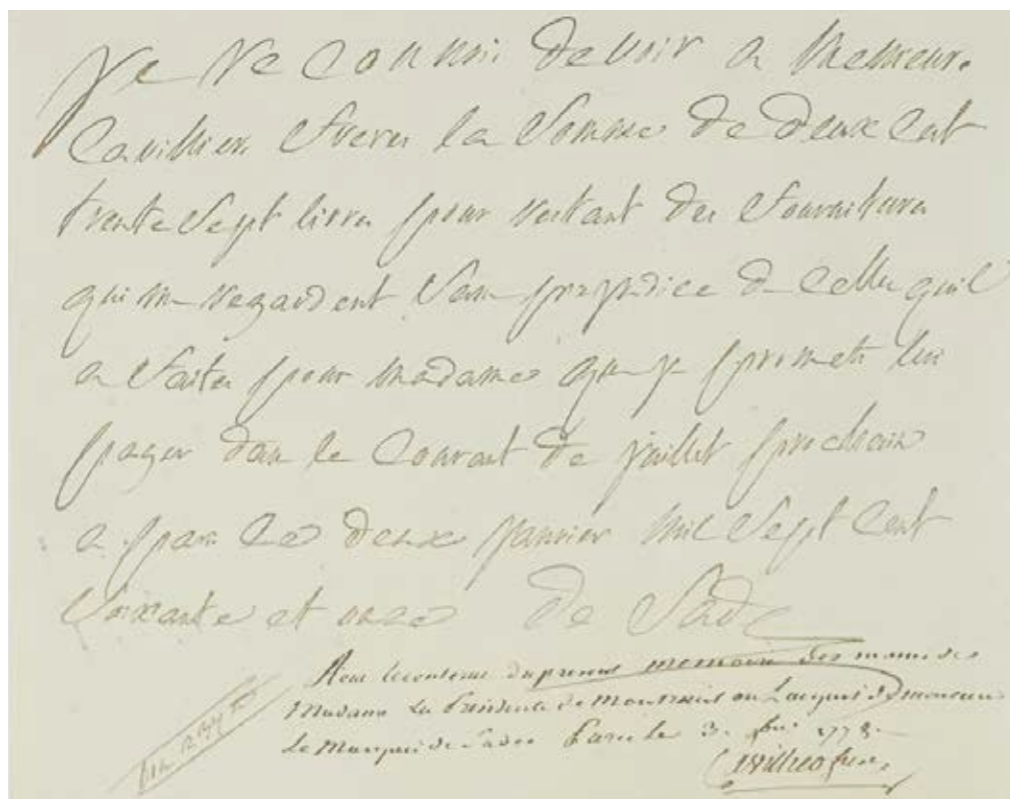 Je Reconnoi devoir a messieur.
Cavillier freres la Somme de deux Cent
trente Sept livres pour restant des fournitures
qui me regardent Sans prejudice de Celles quil
a faites pour madame que je promets lui
payer dans le Courant de juillet prochain
a paris Ce deux janvier mil Sept Cent
Soixante et onze de Sade
Reçu le contenue du present memoire des mains de
Madame La Presidente de Montreuil en Lacquit de monsieur
Le Marquis de Sade Paris le 3. 1778.
Cavillier freres